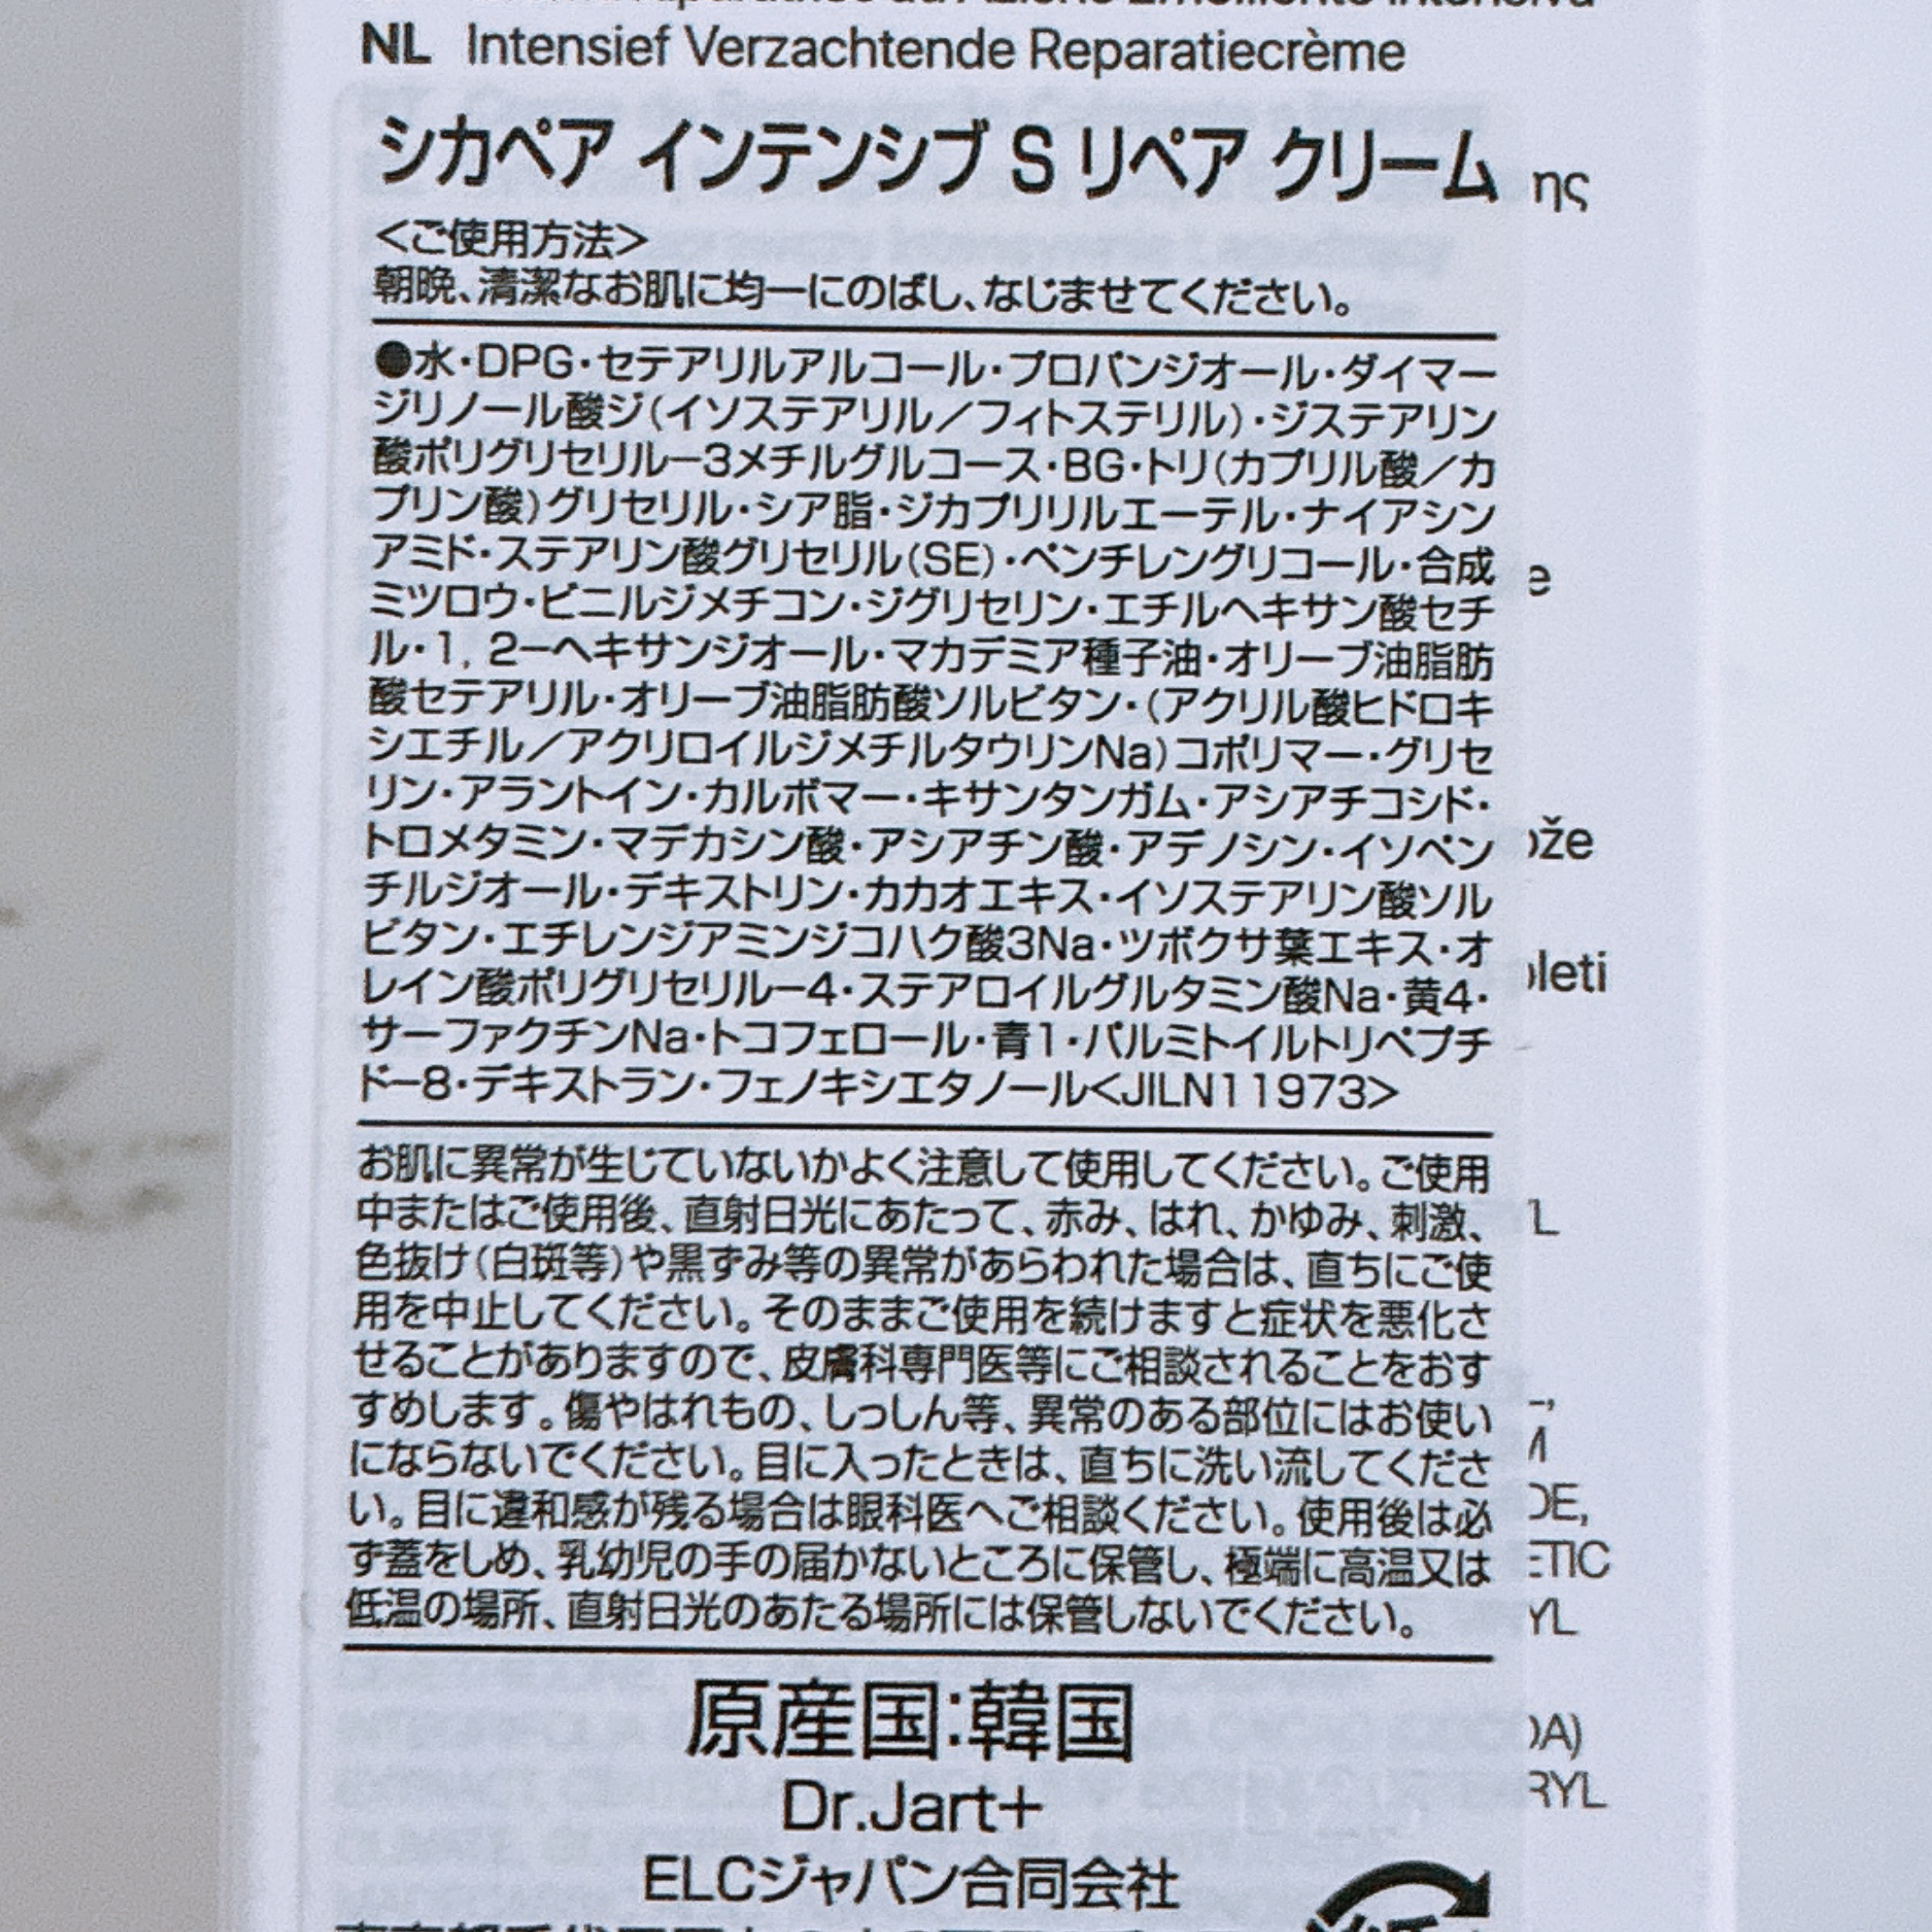 NL Intensief Verzachtende Reparatiecrème
シカペア インテンシブ S リペア クリーム
ης
<ご使用方法>
朝晩、清潔なお肌に均一にのばし、なじませてください。
●水・DPG・セテアリルアルコール・プロパンジオール・ダイマー
ジリノール酸ジ(イソステアリル/フィトステリル)・ジステアリン
酸ポリグリセリル-3メチルグルコース・BG・トリ(カプリル酸/カ
プリン酸)グリセリル・シア脂・ジカプリリルエーテル・ナイアシン
アミド・ステアリン酸グリセリル(SE)・ペンチレングリコール・合成
ミツロウ・ビニルジメチコン・ジグリセリン・エチルヘキサン酸セチ
ル・1, 2-ヘキサンジオール・マカデミア種子油・オリーブ油脂肪
酸セテアリル・オリーブ油脂肪酸ソルビタン・(アクリル酸ヒドロキ
シエチル/アクリロイルジメチルタウリンNa)コポリマー・グリセ
リン・アラントイン・カルボマー・キサンタンガム・アシアチコシド・
トロメタミン・マデカシン酸・アシアチン酸・アデノシン・イソペン
チルジオール・デキストリン・カカオエキス・イソステアリン酸ソル
ビタン・エチレンジアミンジコハク酸3Na・ツボクサ葉エキス・オ
レイン酸ポリグリセリル-4・ステアロイルグルタミン酸Na・黄4・
サーファクチンNa・トコフェロール・青1・パルミトイルトリペプチ
ド-8・デキストラン・フェノキシエタノール<JILN11973>
お肌に異常が生じていないかよく注意して使用してください。ご使用
中またはご使用後、直射日光にあたって、赤み、はれ、かゆみ、刺激、
色抜け(白斑等)や黒ずみ等の異常があらわれた場合は、直ちにご使
用を中止してください。そのままご使用を続けますと症状を悪化さ
せることがありますので、皮膚科専門医等にご相談されることをおす
すめします。傷やはれもの、しっしん等、異常のある部位にはお使い
にならないでください。目に入ったときは、直ちに洗い流してくださ
い。目に違和感が残る場合は眼科医へご相談ください。使用後は必
ず蓋をしめ、乳幼児の手の届かないところに保管し、極端に高温又は
低温の場所、直射日光のあたる場所には保管しないでください。
原産国:韓国
Dr.Jart+
ELCジャパン合同会社